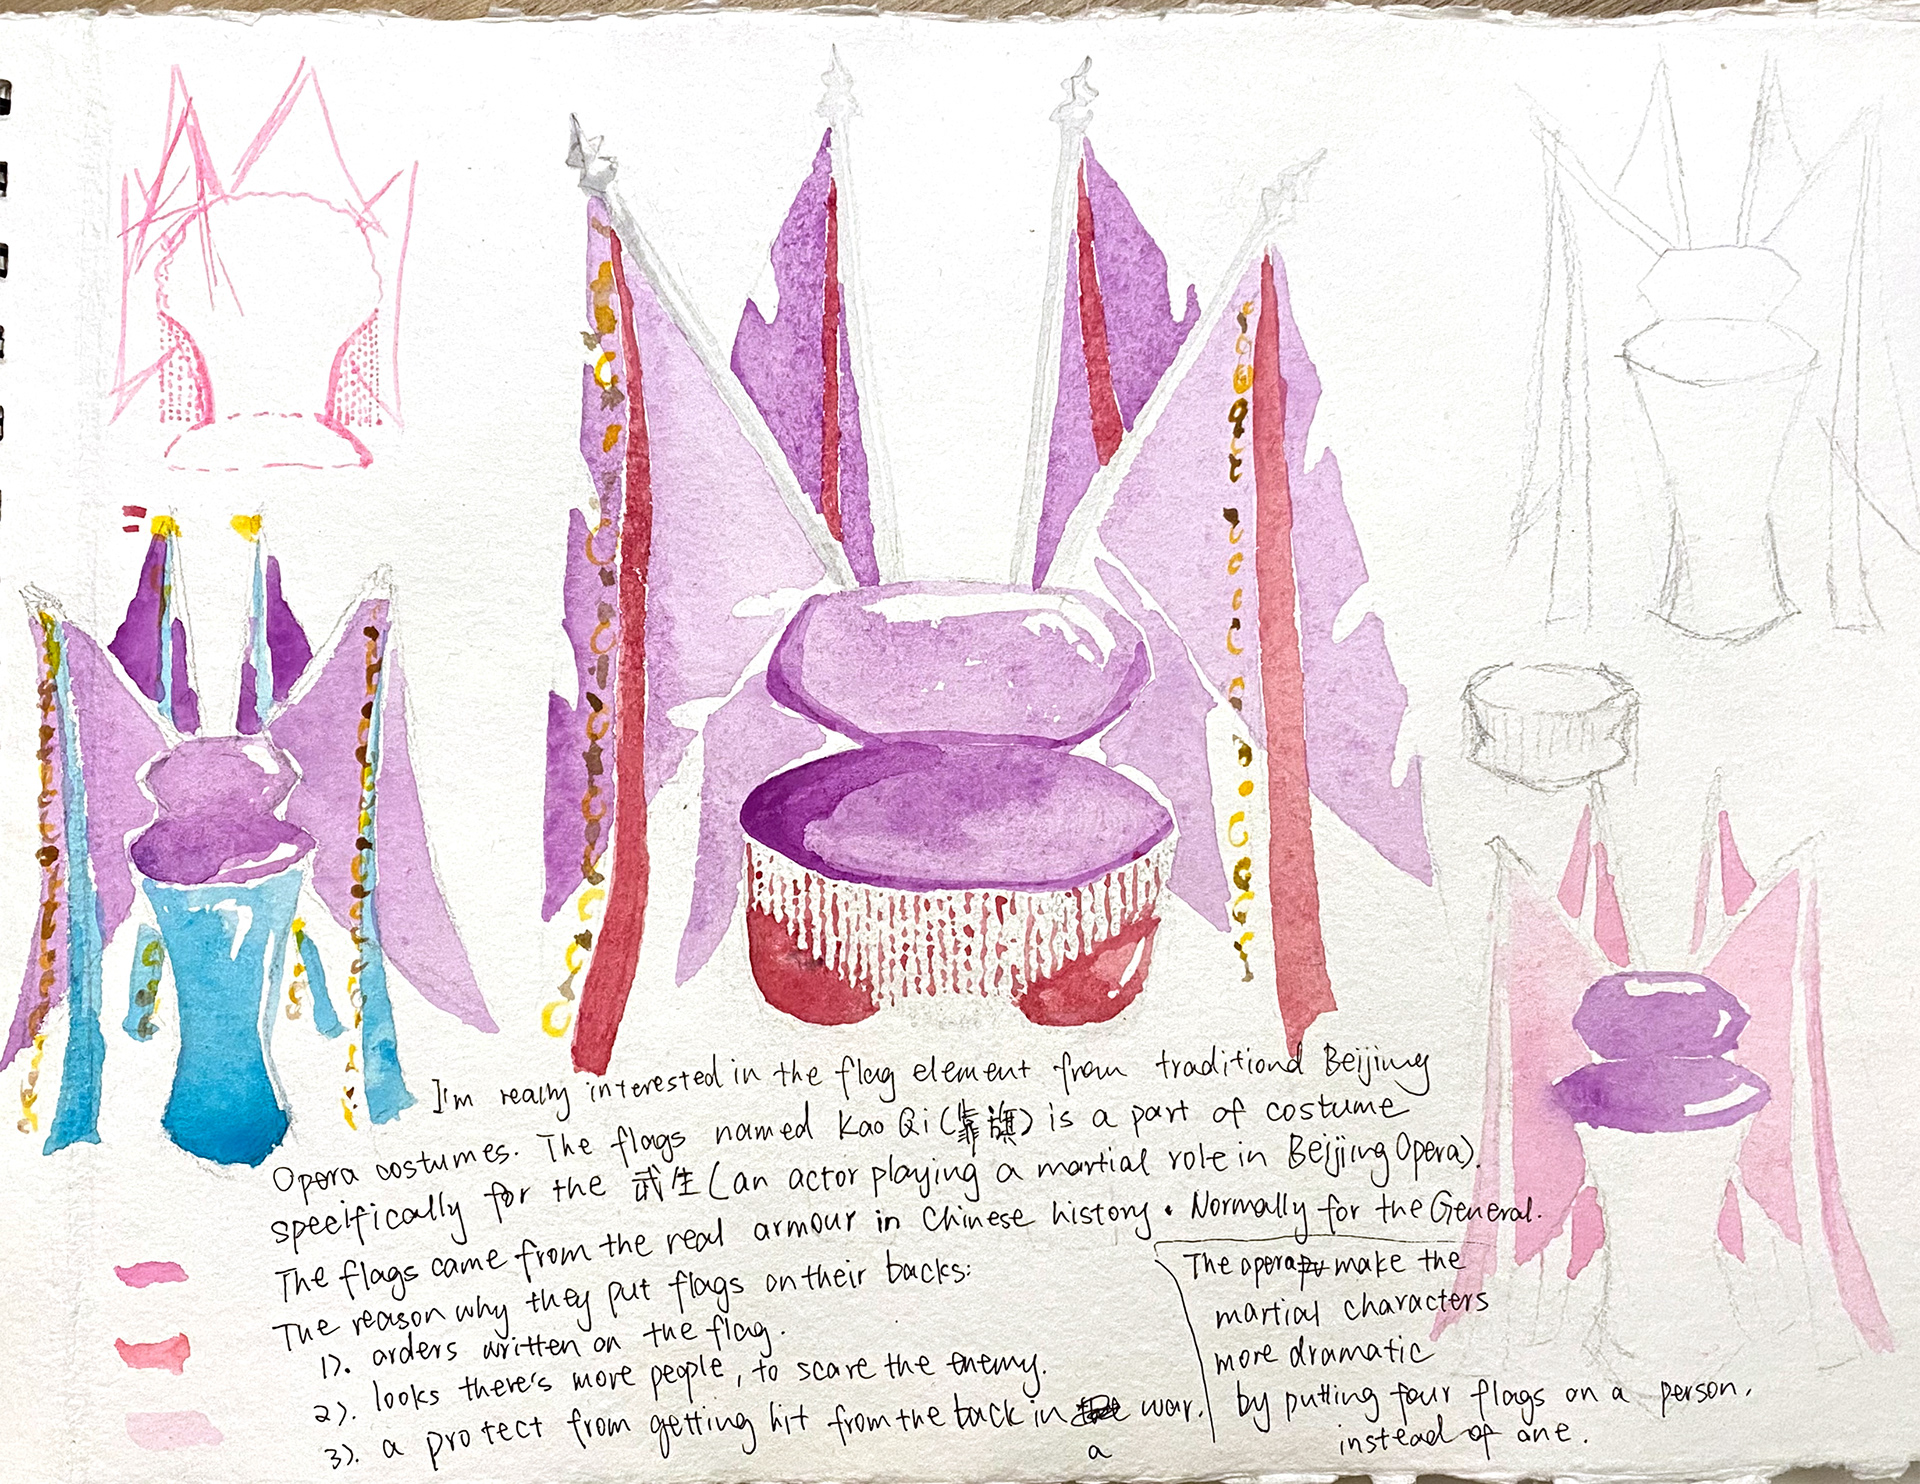 I'm really interested in the flag element from traditional Beijing
Opera costumes. The flags named Kao Qi (靠旗) is a part of costume
specifically for the 武生 (an actor playing a martial role in Beijing Opera).
The flags came from the real armour in Chinese history. Normally for the General.
The reason why they put flags on their backs:
1). orders written on the flag.
2). looks there's more people, to scare the enemy.
3). a protect from getting hit from the back in a war.
The opera make the
martial characters
more dramatic
by putting four flags on a person,
instead of one.